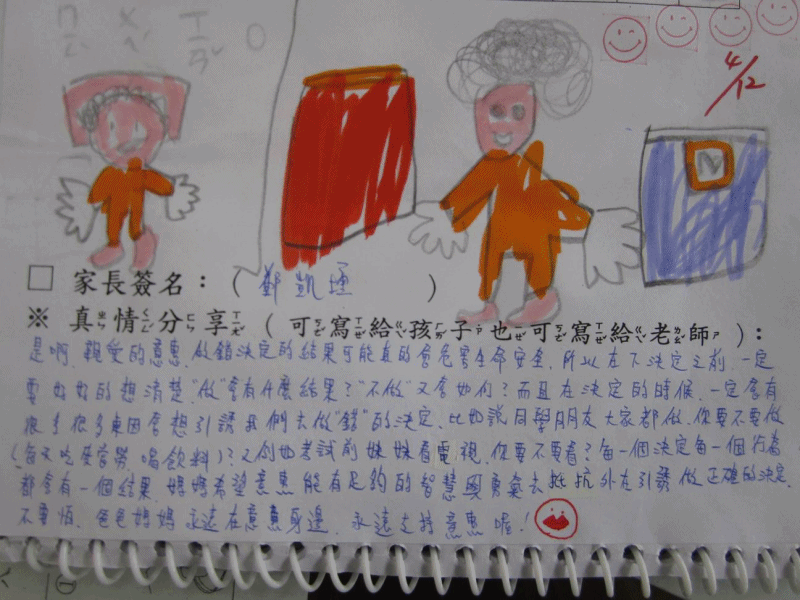 4/12
□ 家長簽名：（鄭凱　）
※ 真ㄓㄣ情ㄑㄧㄥˊ分ㄈㄣ享ㄒㄧㄤˇ（可ㄎㄜˇ寫ㄒㄧㄝˇ給ㄍㄟˇ孩ㄏㄞˊ子ㄗ˙也ㄧㄝˇ可ㄎㄜˇ寫ㄒㄧㄝˇ給ㄍㄟˇ老ㄌㄠˇ師ㄕ）：
是啊，親愛的意惠，做錯決定的結果可能真的會危害生命安全，所以在下決定之前，一定
要好好的想清楚，"做"會有什麼結果？"不做"又會如何？而且在決定的時候，一定會有
很多很多東西會想引誘我們去做"錯"的決定，比如說同學朋友大家都做，你要不要做
（每天吃麥當勞、喝飲料）？又例如考試前妹妹看電視，你要不要看？每一個決定每一個行為
都會有一個結果，媽媽希望意惠能有足夠的智慧與勇氣去抵抗外在引誘做正確的決定，
不要怕，爸爸媽媽永遠在意惠身邊，永遠支持意惠喔！